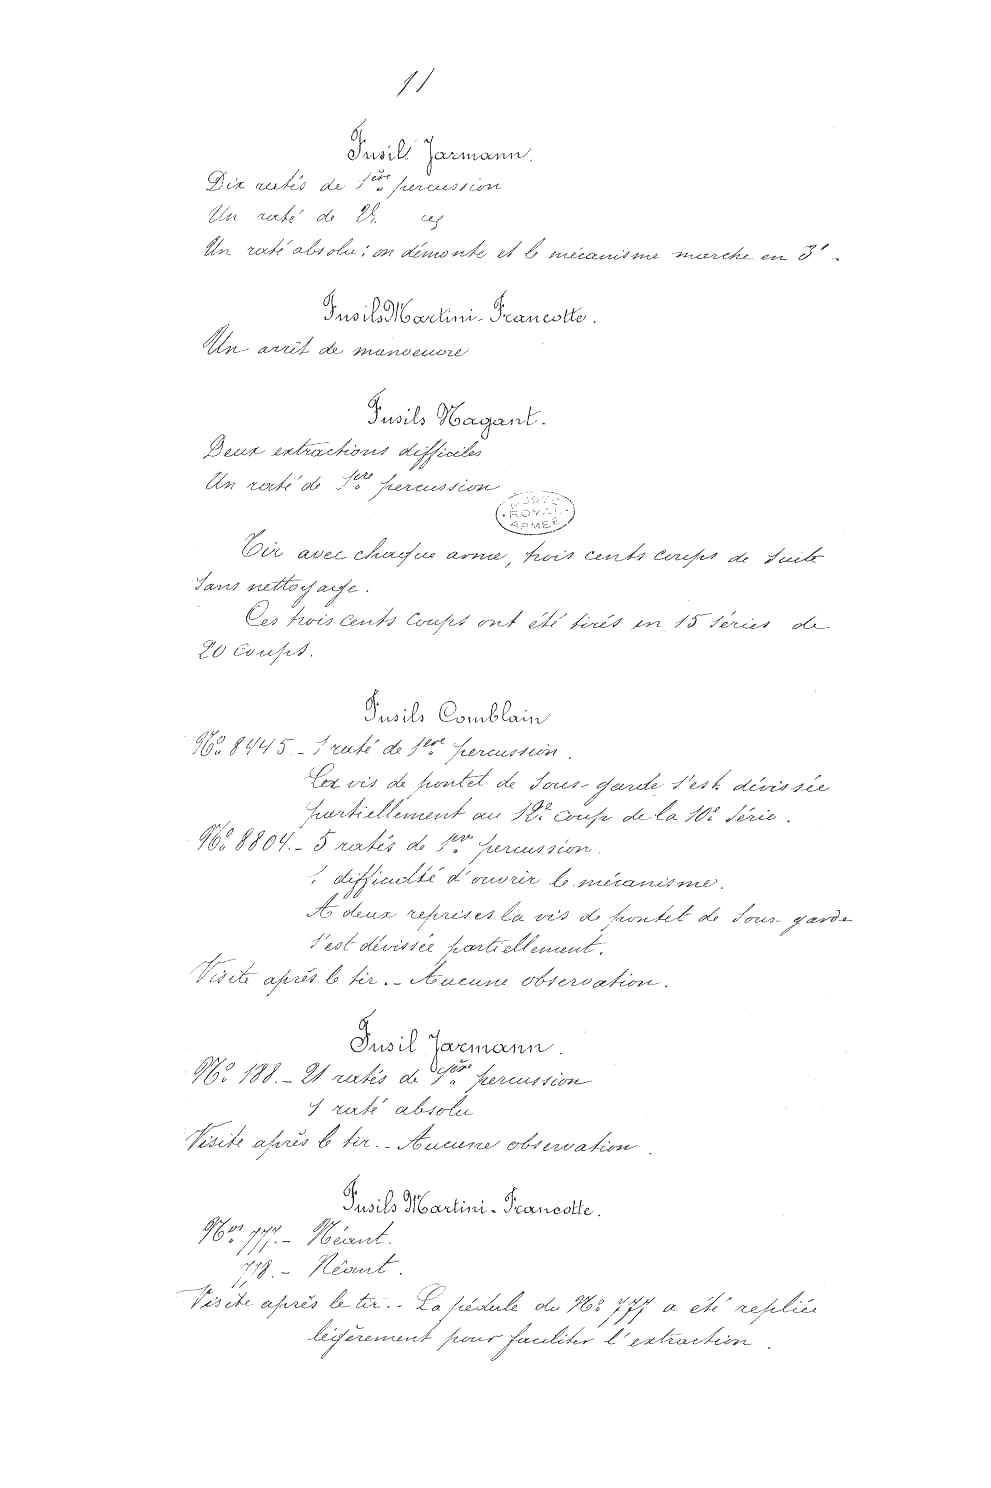 11
Fusil Jarmann.
Dix ratés de 1ère percussion
Un raté de 2e
Un raté absolu: on démonte et le mécanisme marche en 3'.
Fusils Martini-Francotte.
Un arrêt de manoeuvre
Fusils Nagant.
Deux extractions difficiles
Un raté de 1ère percussion
ROYAL
ARMÉE
Tir avec chaque arme, trois cents coups de suite
sans nettoyage.
Ces trois cents coups ont été tirés en 15 séries de
20 coups.
Fusils Comblain
No 8445 - 1 raté de 1ère percussion.
La vis de pontet de sous-garde s'est dévissée
partiellement au 12e coup de la 10e série.
No 8804 - 5 ratés de 1ère percussion.
1 difficulté d'ouvrir le mécanisme.
A deux reprises la vis de pontet de sous-garde
s'est dévissée partiellement.
Visite après le tir. - Aucune observation.
Fusil Jarmann.
No 188. - 21 ratés de 1ère percussion
1 raté absolu
Visite après le tir. - Aucune observation.
Fusils Martini-Francotte.
Nos 777. - Néant.
778. - Néant.
Visite après le tir. - La pédule du No 777 a été repliée
légèrement pour faciliter l'extraction.